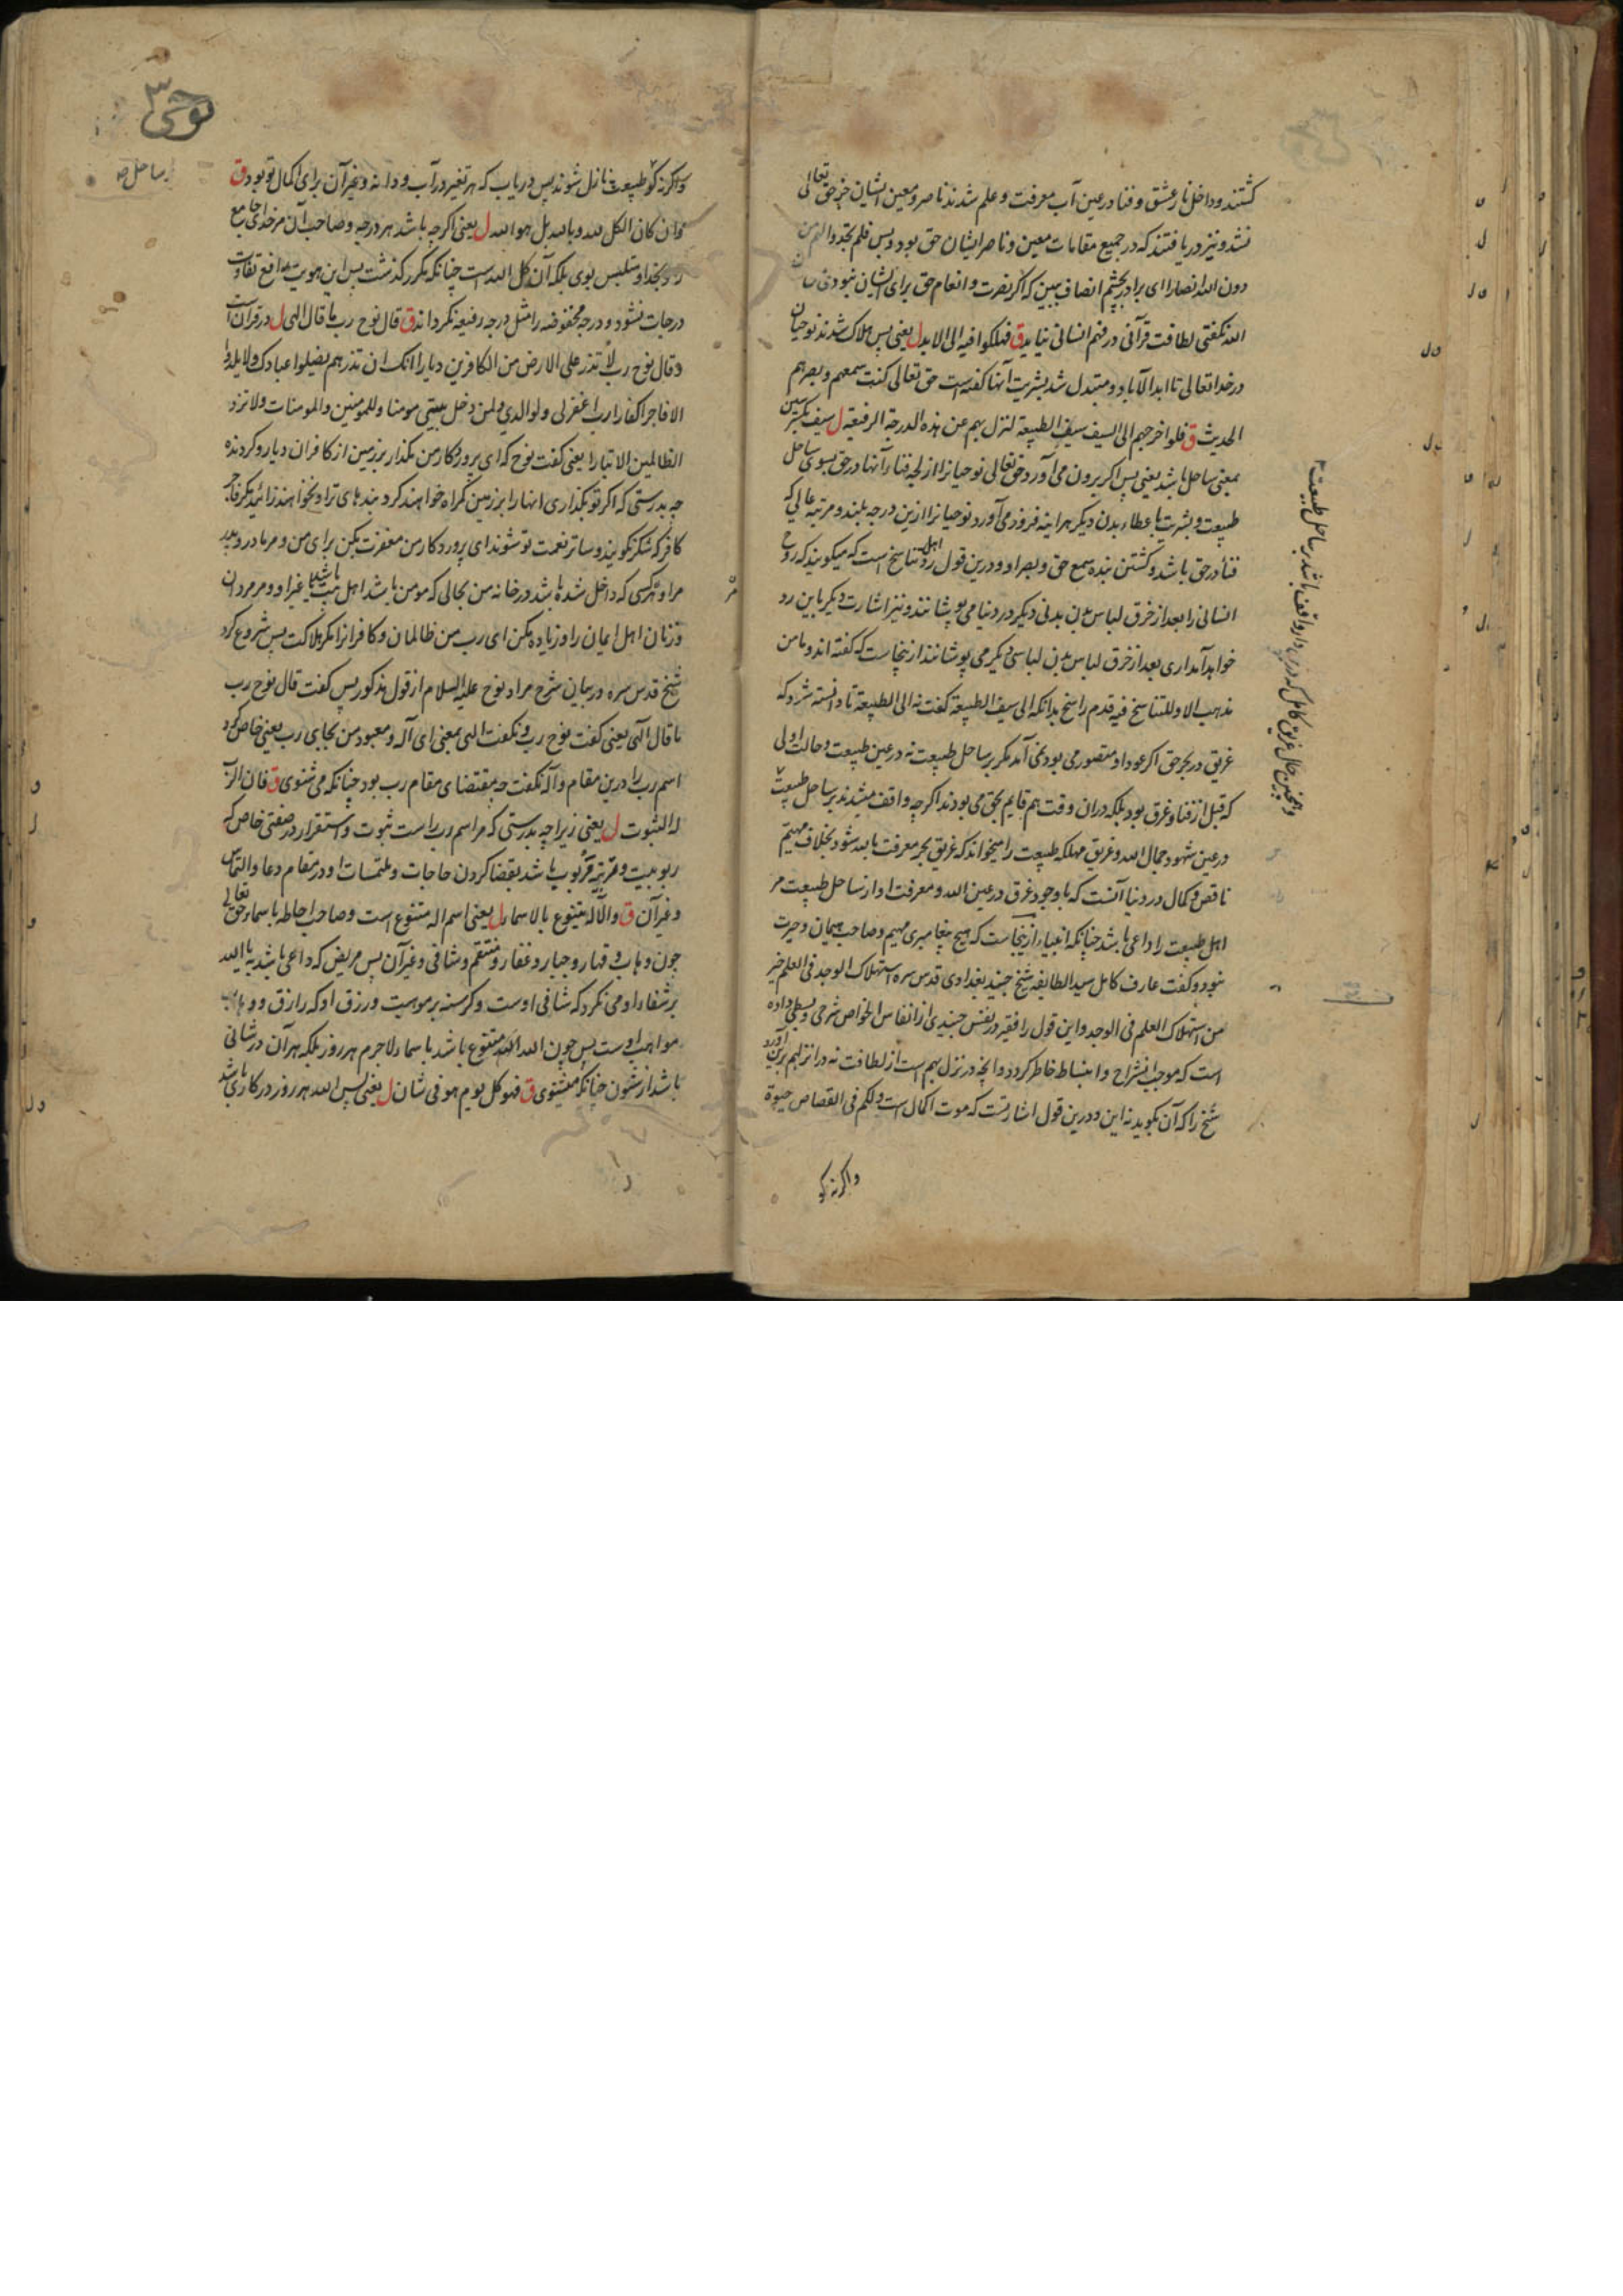 کشتند و داخل نار عشق و فنا در عین آب معرفت و علم شدند ناصر و معین ایشان جز حق تعالی
نشد و نیز دریافتند که در جمیع مقامات معین و ناصر ایشان حق بود و بس فلم یجدوا لهم من
دون الله انصارا ای برادر بچشم انصاف ببین که اگر نصرت و انعام حق برای ایشان نبودی
الله نکفتی لطافت قرآنی در فهم انسانی نیاید ق فهلکوا فیه الی الابد ل یعنی پس هلاک شدند نوحیان
در خدا تعالی تا ابد الآباد و متبدل شد بشریت آنها کفته است حق تعالی کنت سمعهم و بصرهم
الحدیث ق فلو اخرجهم الی السیف سیف الطبیعة لنزل بهم عن هذه الدرجة الرفیعة ل سیف بکسر سین
بمعنی ساحل باشد یعنی پس اکر برون می آورد حق تعالی نوحیانرا از لجه فنار آنها در حق بسوی ساحل
طبیعت و بشریت با عطاء بدن دیکر هراینه فرود می آورد نوحیانرا ازین درجه بلند و مرتبه عالی که
فنا در حق باشد و کشتن بنده سمع حق و بصر او و درین قول رد اهل تناسخ است که میکویند که روح
انسانی را بعد از خرق لباس بدن بدنی دیکر در دنیا می پوشانند و نیز اشارت دیکر باین رد
خواهد آمد اری بعد از خرق لباس بدن لباسی دیکر می پوشانند ازینجاست که کفته اند و ما من
مذهب الا وللتناسخ فیه قدم راسخ بدانکه الی سیف الطبیعة کفت نه الی الطبیعة تا دانسته شود که
غریق در بحر حق اکر عود او متصور می بود نمی آمد مکر بر ساحل طبیعت نه در عین طبیعت و حالت اولی
که قبل از فنا و غرق بود بلکه دران وقت هم قایم بحق می بودند اکرچه واقف میشدند بر ساحل طبیعت
در عین شهود جمال الله و غریق مهلکه طبیعت را میخواند که غریق بحر معرفت بالله شود بخلاف مهیم
ناقص و کمال در دنیا آنست که با وجود غرق در عین الله و معرفت او از ساحل طبیعت مر
اهل طبیعت را داعی باشد چنانکه انبیاء ازینجاست که هیچ پیغامبری مهیم و صاحب هیمان و حیرت
نبود و کفت عارف کامل سید الطایفه شیخ جنید بغدادی قدس سره استهلاک الوجد فی العلم خیر
من استهلاک العلم فی الوجد و این قول را فقیر در نفس جنیدی از انفاس الخواص شرحی و بسطی داده
است که موجب انشراح و انبساط خاطر کردد و آنچه در نزل بهم است از لطافت نه در انزلهم برین آورد
شیخ را که آن بکوید نه این و درین قول اشارتست که موت اکمال است ولکم فی القصاص حیوة
واکرنه کو
و همچنین حال غریق کامل که درین دار واقف باشد بر ساحل طبیعت
نوحی ۳
ساحل صه
واکرنه کو طبیعت نازل شوند پس دریاب که هر تغیر در آب و دانه و غیر آن برای اکمال تو بود ق
وان کان الکل لله وبالله بل هو الله ل یعنی اکرچه باشد هر درجه و صاحب آن مر خدای جامع
را و بخدا و متلبس بوی بلکه آن کل الله است چنانکه مکرر کذشت پس این هویت رافع تفاوت
درجات نشود و درجه مخفوضه را مثل درجه رفیعه نکرداند ق قال نوح رب ما قال الهی ل در قرآن است
وقال نوح رب لا تذر علی الارض من الکافرین دیارا انک ان تذرهم یضلوا عبادک ولا یلدوا
الا فاجرا کفارا رب اغفر لی ولوالدی ولمن دخل بیتی مومنا وللمومنین والمومنات ولا تزد
الظالمین الا تبارا یعنی کفت نوح که ای پروردکار من مکذار بر زمین از کافران دیار و کردنده
چه بدرستی که اکر تو بکذاری انها را بر زمین کمراه خواهند کرد بندهای ترا و نخواهند زائید مکر فاجر
کافر که شکر نکویند و ساتر نعمت تو شوند ای پروردکار من مغفرت بکن برای من و مر مادر و پدر
مرا و هر کسی که داخل شده باشد در خانه من بحالی که مومن باشد اهل بیت باشد یا غیر او و مر مردان
و زنان اهل ایمان را و زیاده مکن ای رب من ظالمان و کافرانرا مکر هلاکت پس شروع کرد
شیخ قدس سره در بیان شرح مراد نوح علیه السلام از قول مذکور پس کفت قال نوح رب
ما قال الهی یعنی کفت نوح رب و نکفت الهی بمعنی ای آله و معبود من بجای رب یعنی خاص کرد
اسم رب را درین مقام و آله نکفت چه مقتضای مقام رب بود چنانکه می شنوی ق فان الرب
له الثبوت ل یعنی زیراچه بدرستی که مر اسم رب راست ثبوت و استقرار در صفتی خاص که
ربوبیت و مرتبه مربوب باشد بقضا کردن حاجات و ملتمسات او در مقام دعا و التماس
و غیر آن ق والآله یتنوع بالاسماء ل یعنی اسم اله متنوع است و صاحب احاطه باسماء حق تعالی
چون وهاب و قهار و جبار و غفار و منتقم و شافی و غیر آن پس مریض که داعی باشد به یا الله
بر شفاء او می نکرد که شافی اوست و کرسنه بر موهبت و رزق او که رازق و وهاب
مواهب اوست پس چون الله اله متنوع باشد باسماء لاجرم هر روز بلکه هر آن در شانی
باشد از شئون چنانکه میشنوی ق فهو کل یوم هو فی شان ل یعنی پس الله هر روز در کاری باشد